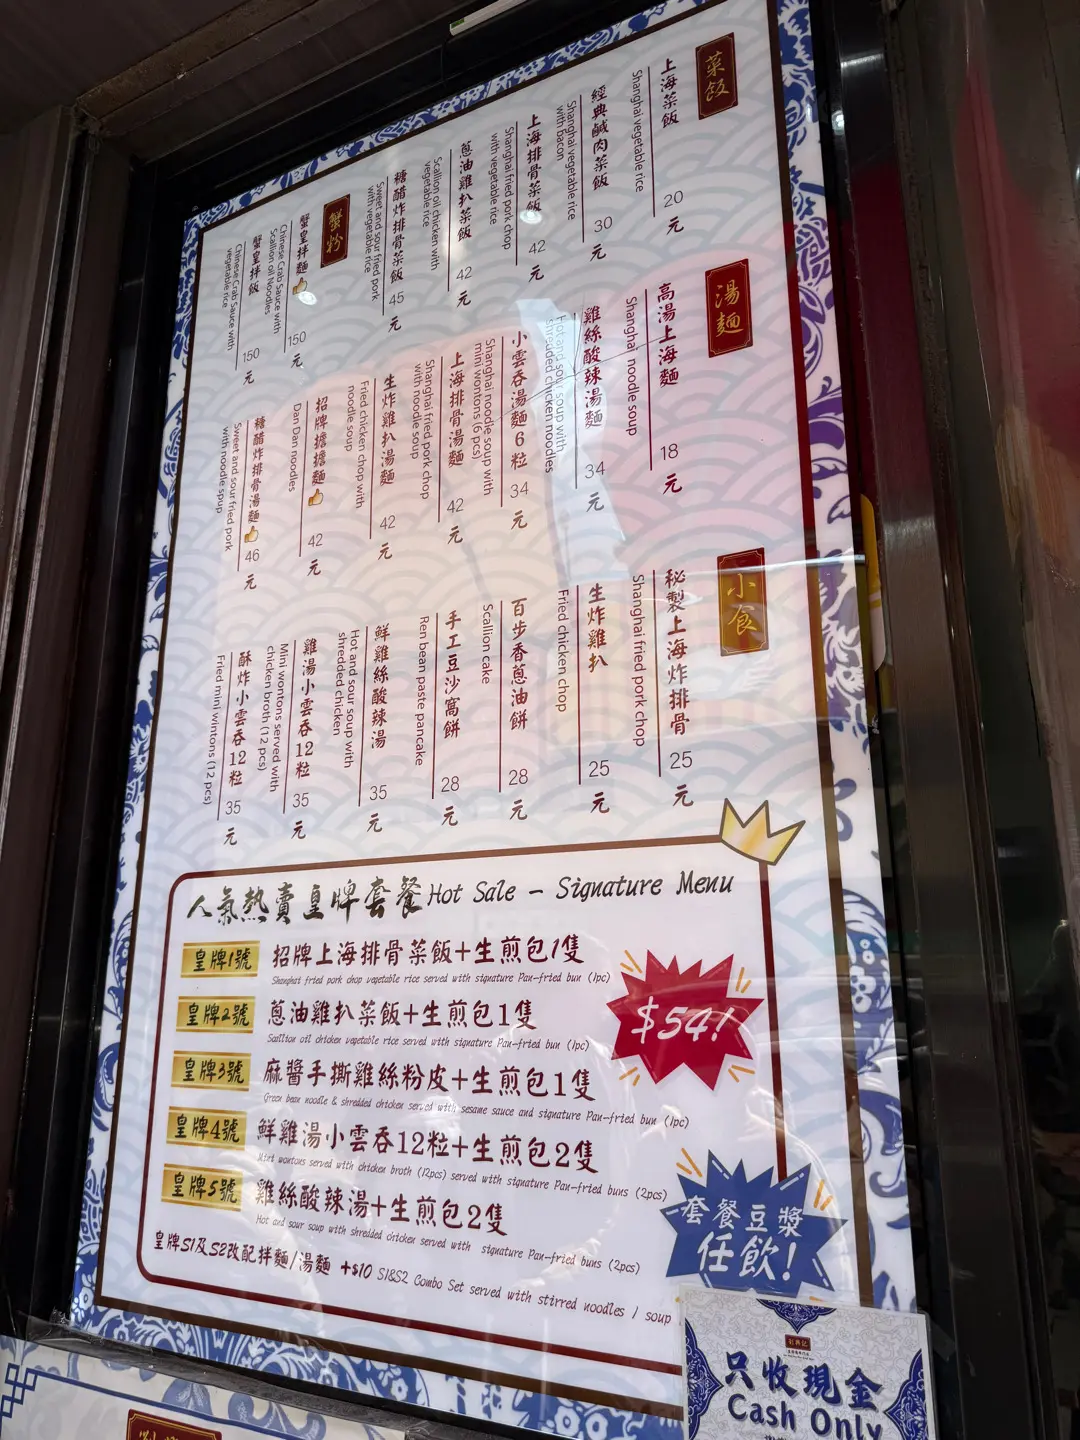 菜飯
上海菜飯
Shanghai vegetable rice
20元
經典鹹肉菜飯
Shanghai vegetable rice
with bacon
30元
上海排骨菜飯
Shanghai fried pork chop
with vegetable rice
42元
蔥油雞扒菜飯
Scallion oil chicken with
vegetable rice
42元
糖醋炸排骨菜飯
Sweet and sour fried pork
with vegetable rice
45元
蟹粉
蟹皇拌麵
Chinese Crab Sauce with
Scallion oil Noodles
150元
蟹皇拌飯
Chinese Crab Sauce with
vegetable rice
150元
湯麵
高湯上海麵
Shanghai noodle soup
18元
雞絲酸辣湯麵
Hot and sour soup with
shredded chicken noodles
34元
小雲吞湯麵6粒
Shanghai noodle soup with
mini wontons (6 pcs)
34元
上海排骨湯麵
Shanghai fried pork chop
with noodle soup
42元
生炸雞扒湯麵
Fried chicken chop with
noodle soup
42元
招牌擔擔麵
Dan Dan noodles
42元
糖醋炸排骨湯麵
Sweet and sour fried pork
with noodle spup
46元
小食
秘製上海炸排骨
Shanghai fried pork chop
25元
生炸雞扒
Fried chicken chop
25元
百步香蔥油餅
Scallion cake
28元
手工豆沙窩餅
Ren bean paste pancake
28元
鮮雞絲酸辣湯
Hot and sour soup with
shredded chicken
35元
雞湯小雲吞12粒
Mini wontons served with
chicken broth (12 pcs)
35元
酥炸小雲吞12粒
Fried mini wintons (12 pcs)
35元
人氣熱賣皇牌套餐 Hot Sale - Signature Menu
皇牌1號 招牌上海排骨菜飯+生煎包1隻
Shanghai fried pork chop vagetable rice served with signature Pan-fried bun (1pc)
皇牌2號 蔥油雞扒菜飯+生煎包1隻
Scallion oil chicken vagetable rice served with signature Pan-fried bun (1pc)
$54!
皇牌3號 麻醬手撕雞絲粉皮+生煎包1隻
Green bean noodle & shredded chicken served with sesame sauce and signature Pan-fried bun (1pc)
皇牌4號 鮮雞湯小雲吞12粒+生煎包2隻
Mini wontons served with chicken broth (12pcs) served with signature Pan-fried buns (2pcs)
皇牌5號 雞絲酸辣湯+生煎包2隻
Hot and sour soup with shredded chicken served with signature Pan-fried buns (2pcs)
套餐豆漿
任飲!
皇牌S1及S2改配拌麵/湯麵 +$10 S1&S2 Combo Set served with stirred noodles / soup
只收現金
Cash Only